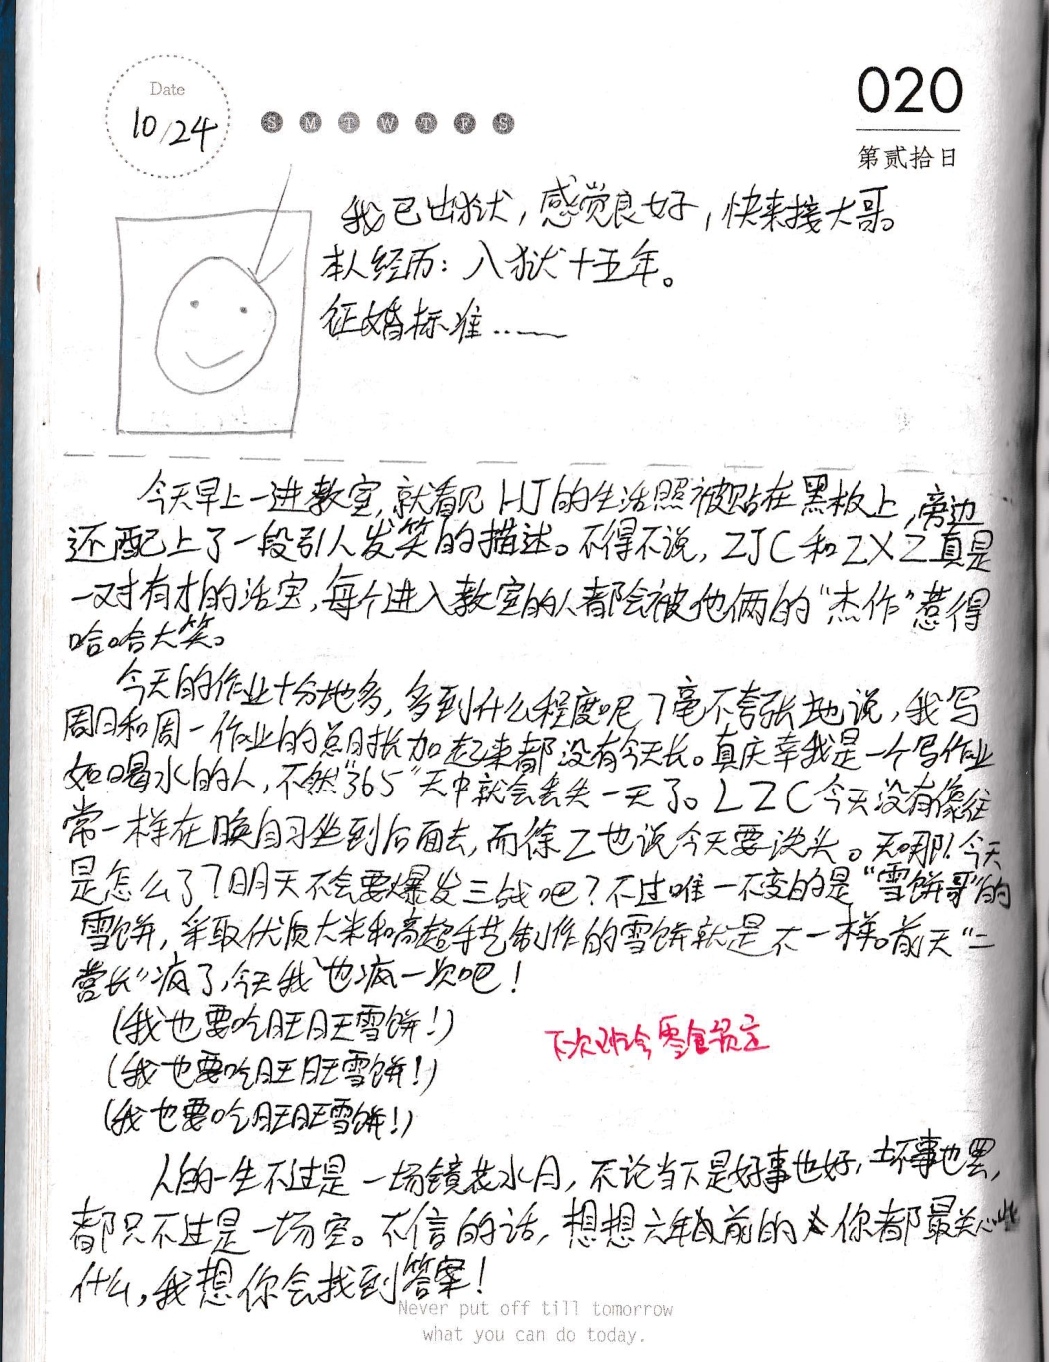 Date
10/24
S M T W T F S
020
第贰拾日
我已出狱，感觉良好，快来接大哥。
本人经历：入狱十五年。
征婚标准……
今天早上一进教室，就看见HJ的生活照被贴在黑板上，旁边
还配上了一段引人发笑的描述。不得不说，ZJC和ZXZ真是
一对有才的活宝，每个进入教室的人都会被他俩的“杰作”惹得
哈哈大笑。
今天的作业十分地多，多到什么程度呢？毫不夸张地说，我写
周日和周一作业的总时长加起来都没有今天长。真庆幸我是一个写作业
如喝水的人，不然“365”天中就会丢失一天了。LZC今天没有像往
常一样在晚自习坐到后面去，而徐Z也说今天要洗头。天哪！今天
是怎么了？明天不会要爆发三战吧？不过唯一不变的是“雪饼哥”的
雪饼，采取优质大米和高超手艺制作的雪饼就是不一样。前天“二
营长”疯了，今天我也疯一次吧！
（我也要吃旺旺雪饼！）
（我也要吃旺旺雪饼！）
（我也要吃旺旺雪饼！）
下次班会零食预定
人的一生不过是一场镜花水月，不论当下是好事也好，坏事也罢，
都只不过是一场空。不信的话，想想六年前的你都最关心些
什么，我想你会找到答案！
Never put off till tomorrow
what you can do today.